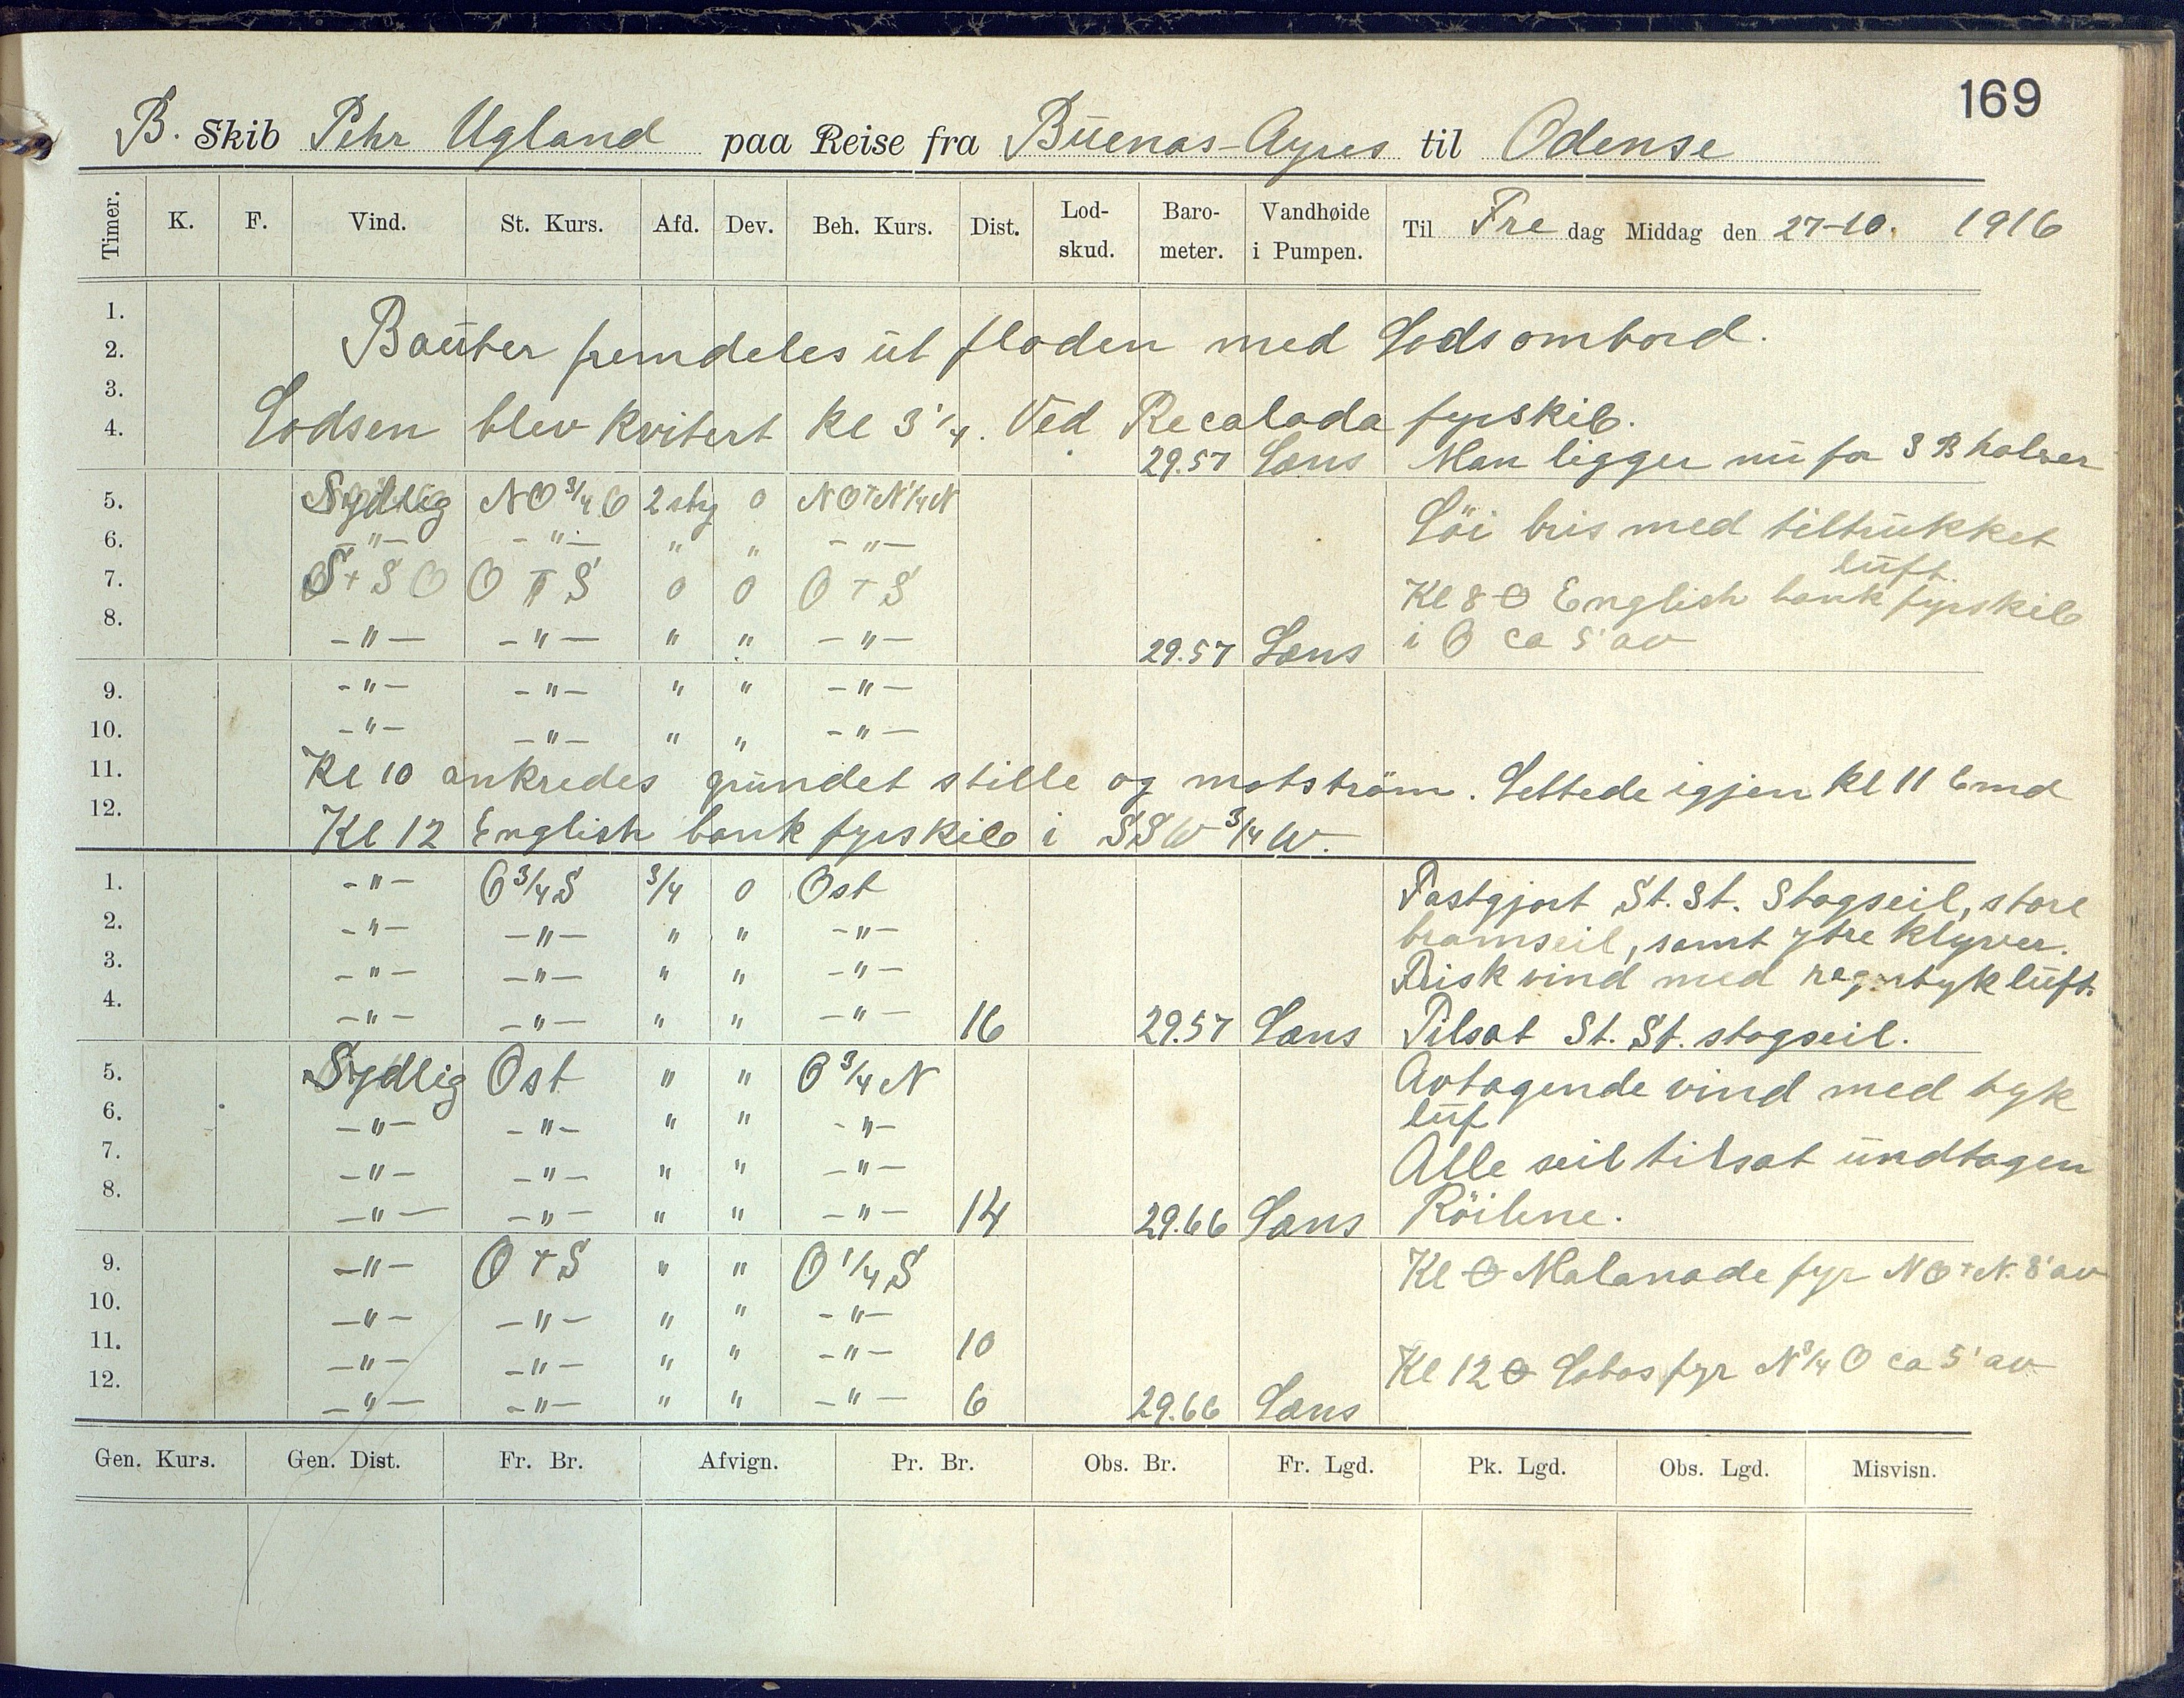 169
B. Skib Pehr Ugland paa Reise fra Buenos-Ayres til Odense
Timer. K. F. Vind. St. Kurs. Afd. Dev. Beh. Kurs. Dist. Lod-skud. Baro-meter. Vandhøide i Pumpen. Til Fre dag Middag den 27-10. 1916
1.
2. Bauter fremdeles ut floden med Lods ombord.
3.
4. Lodsen blev kvitert kl 3 1/4. Ved Recalada fyrskib.
29.57 Læns Man ligger nu for 3 B halser
5. Sydlig NO 3/4 O 2 str 0 NO+N 1/4 N Löi bris med tiltrukket
6. -"- -"- " " -"- luft.
7. S+SO O+S 0 0 O+S Kl 8 English bank fyrskib
8. -"- -"- " " -"- 29.57 Læns i O ca 5' av
9. -"- -"- " " -"-
10. -"- -"- " " -"-
11. Kl 10 ankredes grundet stille og motström. Lettede igjen kl 11 Emd
12. Kl 12 English bank fyrskib i SSW 3/4 W.
1. -"- O 3/4 S 3/4 0 Ost Fastgjort St. St. Stagseil, store
2. -"- -"- " " -"- bramseil, samt ytre klyver.
3. -"- -"- " " -"- Frisk vind med regntyk luft.
4. -"- -"- " " -"- 16 29.57 Læns Tilsat St. St. stagseil.
5. Sydlig Ost " " O 3/4 N Avtagende vind med tyk
6. -"- -"- " " -"- luf
7. -"- -"- " " -"- Alle seil tilsat undtagen
8. -"- -"- " " -"- 14 29.66 Læns Röilene.
9. -"- O+S " " O 1/4 S Kl Malanade fyr NO+N. 8' av
10. -"- -"- " " -"-
11. -"- -"- " " -"- 10 Kl 12 Lobos fyr N 3/4 O ca 5' av
12. -"- -"- " " -"- 6 29.66 Læns
Gen. Kurs. Gen. Dist. Fr. Br. Afvign. Pr. Br. Obs. Br. Fr. Lgd. Pk. Lgd. Obs. Lgd. Misvisn.